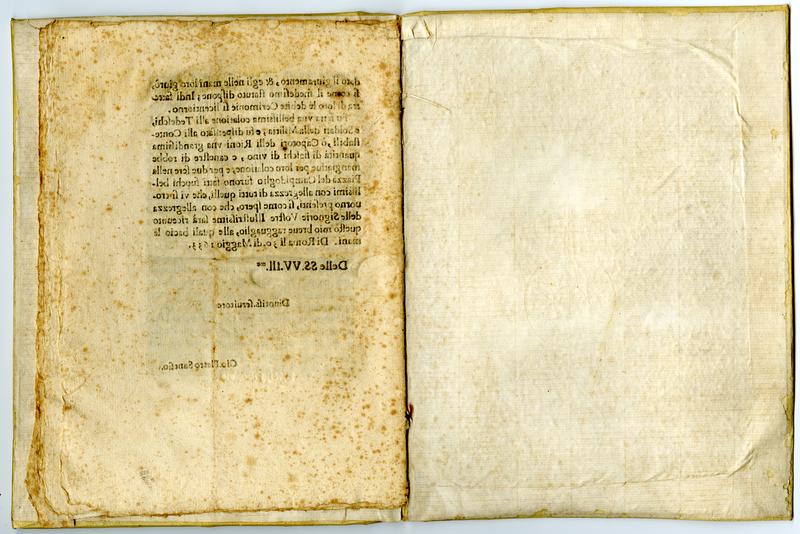 dato il giuramento, & egli nelle mani loro giurò,
si come il medesimo statuto dispone; Indi fatte
tra di loro le debite Cerimonie si licentiorno.
Fù fatta vna bellissima colatione alli Tedeschi,
e Soldati della Militia; e fù dispensato alli Conte-
stabili, ò Caporori delli Rioni vna grandissima
quantità di fiaschi di vino, e canestre di robbe
mangiatiue per loro colatione, e per due sere nella
Piazza del Campidoglio furono fatti fuochi bel-
lissimi con allegrezza di tutti quelli, che vi si tro-
uorno presenti, si come spero, che con allegrezza
delle Signorie Vostre Illustrissime sarà riceuuto
questo mio breue ragguaglio, alle quali bacio le
mani. Di Roma li 30. di Maggio 1633.
Delle SS. VV. Ill.me
Diuotiss. seruitore
Gio. Pietro